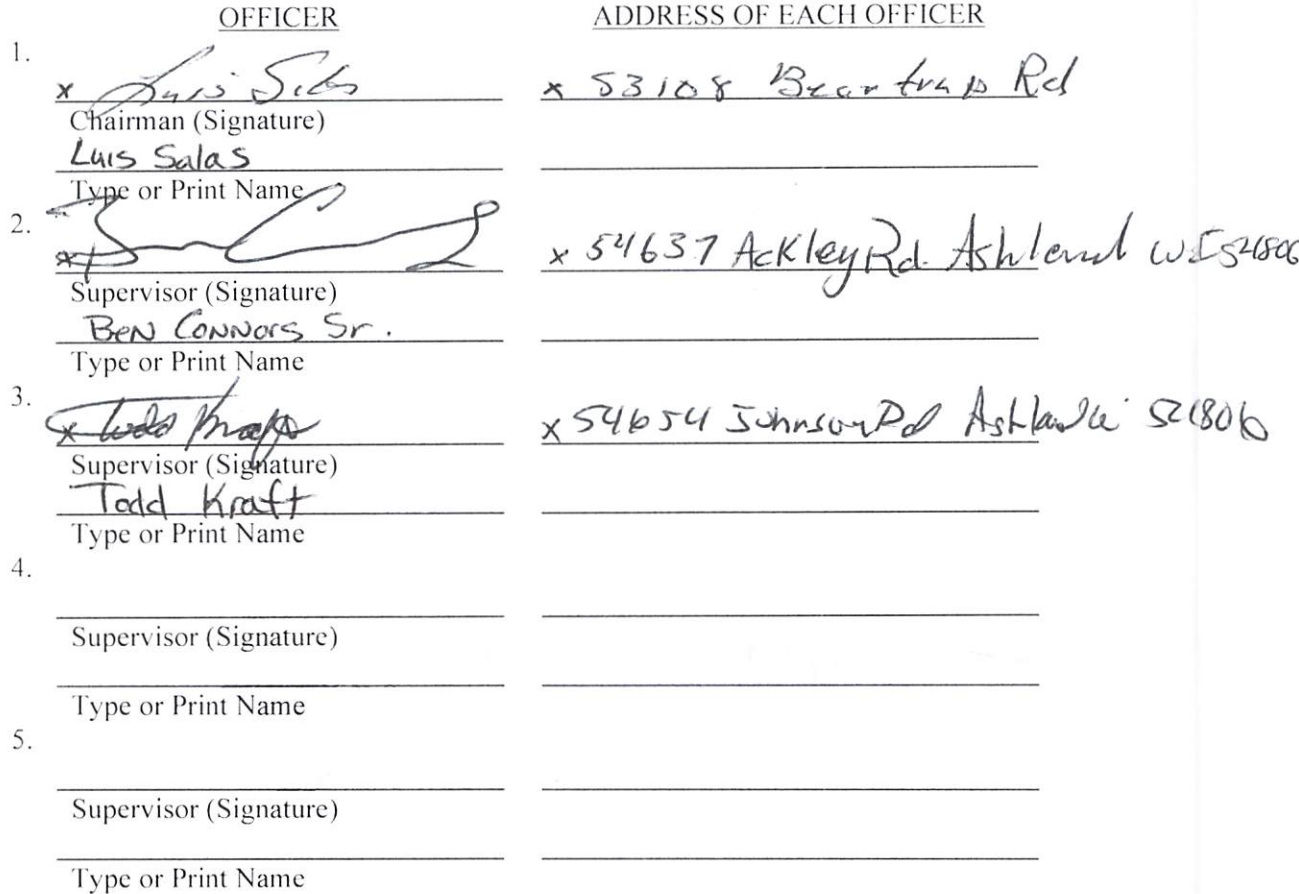 OFFICER ADDRESS OF EACH OFFICER
1.
x Luis Salas x 53108 Beartrap Rd
Chairman (Signature)
Luis Salas
Type or Print Name
2.
x x 54637 Ackley Rd. Ashland WI 54806
Supervisor (Signature)
Ben Connors Sr.
Type or Print Name
3.
x Todd Kraft x 54654 Johnson Rd Ashland 54806
Supervisor (Signature)
Todd Kraft
Type or Print Name
4.
Supervisor (Signature)
Type or Print Name
5.
Supervisor (Signature)
Type or Print Name